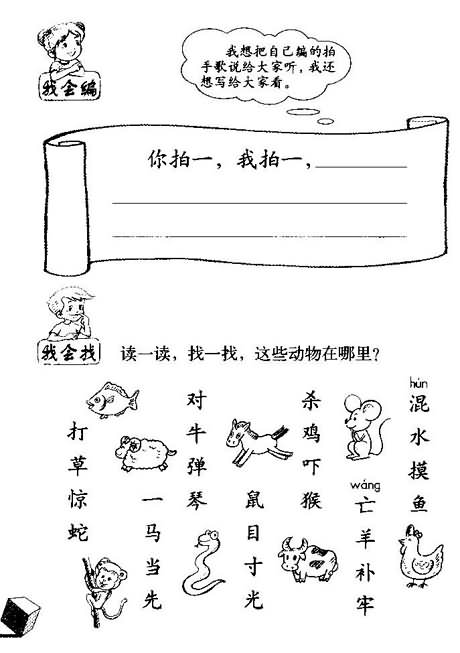 我会编
我想把自己编的拍
手歌说给大家听，我还
想写给大家看。
你拍一，我拍一，
我会找
读一读，找一找，这些动物在哪里？
打草惊蛇
一马当先
对牛弹琴
鼠目寸光
杀鸡吓猴
wáng
亡羊补牢
hùn
混水摸鱼